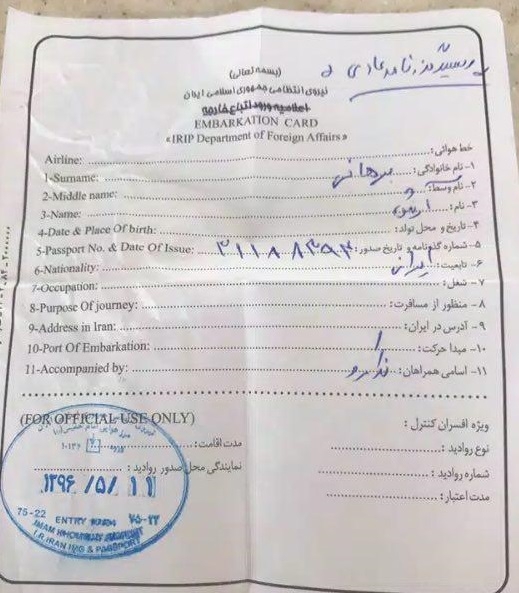 رسید گذرنامه عادی
(بسمه تعالی)
نیروی انتظامی جمهوری اسلامی ایران
اعلامیه ورود اتباع خارجه
EMBARKATION CARD
«IRIP Department of Foreign Affairs»
Airline: خط هوائی:
1-Surname: برهانی ۱- نام خانوادگی:
2-Middle name: ۲- نام وسط:
3-Name: ۳- نام:
4-Date & Place Of birth: ۴- تاریخ و محل تولد:
5-Passport No. & Date Of Issue: ۵- شماره گذرنامه و تاریخ صدور:
6-Nationality: ایرانی ۶- تابعیت:
7-Occupation: ۷- شغل:
8-Purpose Of journey: ۸- منظور از مسافرت:
9-Address in Iran: ۹- آدرس در ایران:
10-Port Of Embarkation: ۱۰- مبدا حرکت:
11-Accompanied by: ندارد ۱۱- اسامی همراهان:
(FOR OFFICIAL USE ONLY) ویژه افسران کنترل:
مدت اقامت: نوع روادید:
نمایندگی محل صدور روادید: شماره روادید:
مدت اعتبار:
۱۳۹۶ /۵/ ۱۱
75-22 ENTRY ۷۵-۲۲
IMAM KHOMEINI AIRPORT
I.R.IRAN IMG & PASSPORT